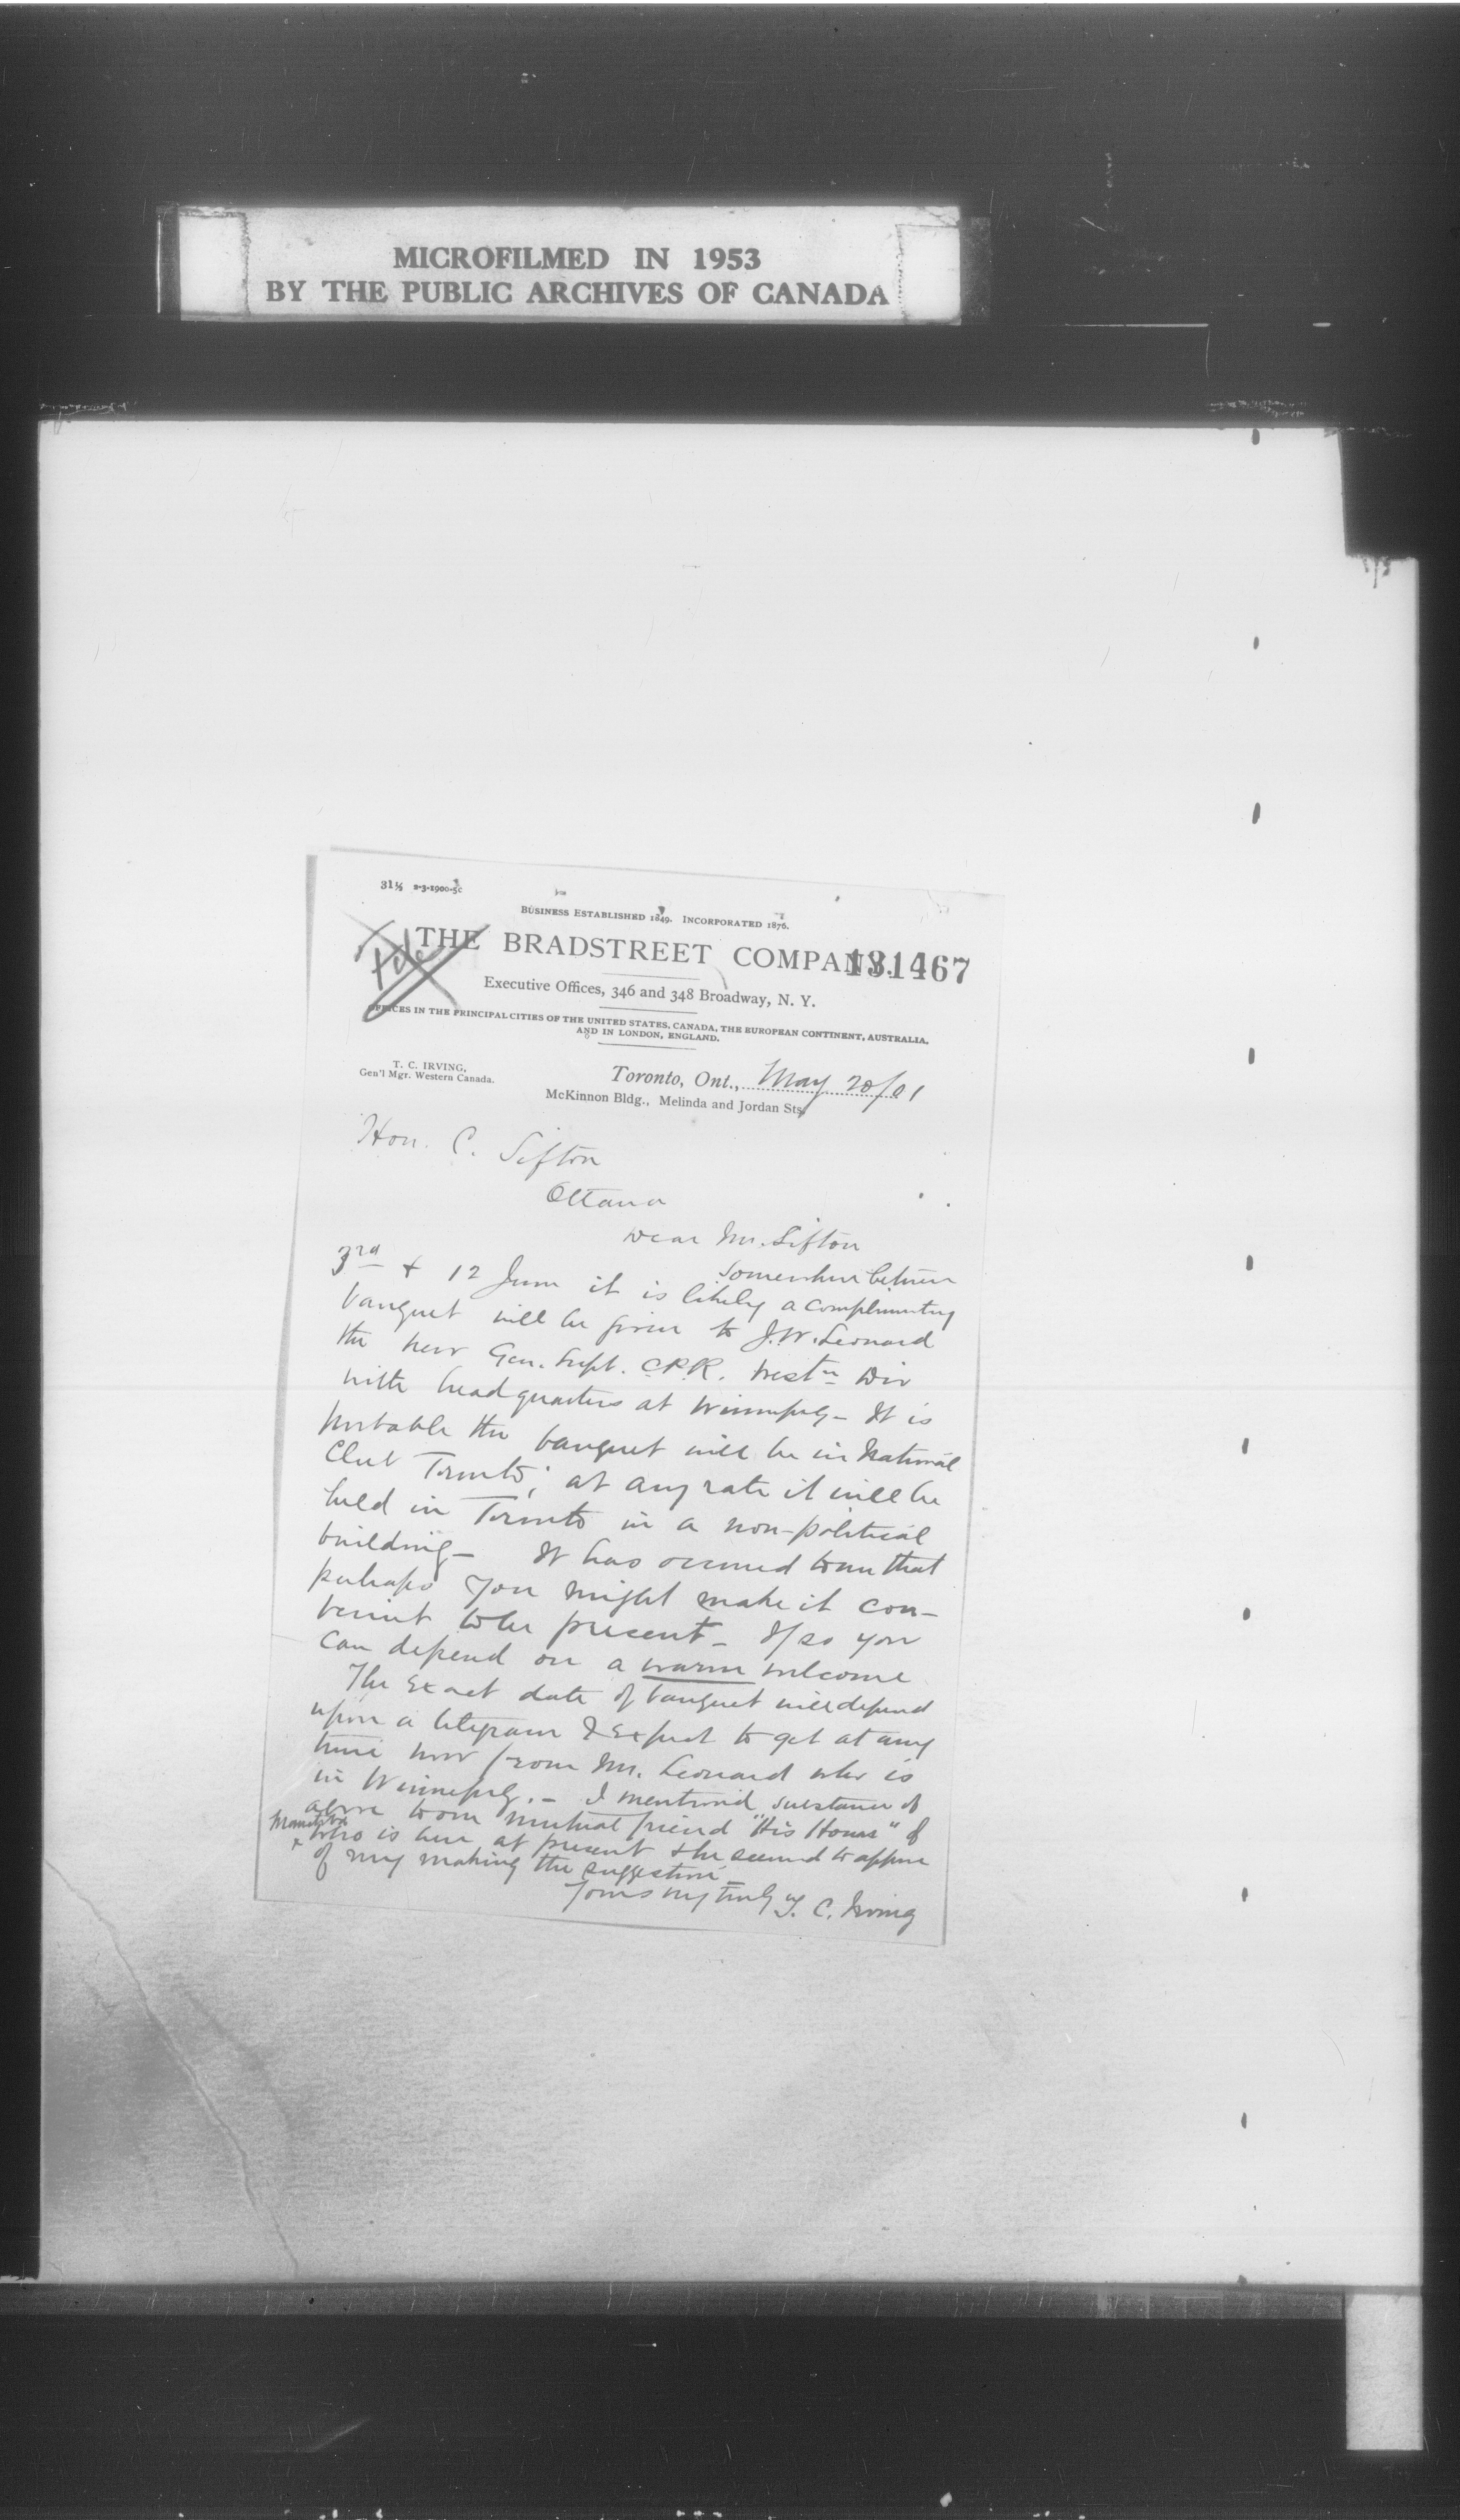 MICROFILMED IN 1953
BY THE PUBLIC ARCHIVES OF CANADA
31½ 2-3-1900-5c
BUSINESS ESTABLISHED 1849. INCORPORATED 1876.
File
THE BRADSTREET COMPANY.
131467
Executive Offices, 346 and 348 Broadway, N. Y.
OFFICES IN THE PRINCIPAL CITIES OF THE UNITED STATES, CANADA, THE EUROPEAN CONTINENT, AUSTRALIA,
AND IN LONDON, ENGLAND.
T. C. IRVING,
Gen'l Mgr. Western Canada.
Toronto, Ont., May 20/01
McKinnon Bldg., Melinda and Jordan Sts.
Hon. C. Sifton
Ottawa
Dear Mr. Sifton
Somewhere between
3rd & 12 June it is likely a complimentary
banquet will be given to J.W. Leonard
the new Gen. Supt. C.P.R. westn Div
with headquarters at Winnipeg - It is
probable the banquet will be in National
Club Toronto; at any rate it will be
held in Toronto in a non-political
building - It has occurred to me that
perhaps you might make it con-
venient to be present - If so you
can depend on a warm welcome
The exact date of banquet will depend
upon a telegram I expect to get at any
time now from Mr. Leonard who is
in Winnipeg. - I mentioned substance of
above to our mutual friend "His Honor" of
Manitoba
x who is here at present & he seemed to approve
of my making the suggestion -
Yours very truly T. C. Irving